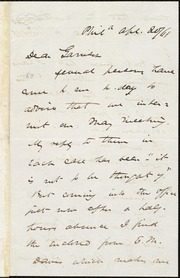 Phila Apl. 20/61
Dear Garrison
Several persons have
come to me to day to
advise that we inter-
mit our May Meeting
My reply to them in
each case has been "it
is not to be thought of"
But coming into the office
just now after a half
hours absence I find
the enclosed from E. M.
Davis which makes me